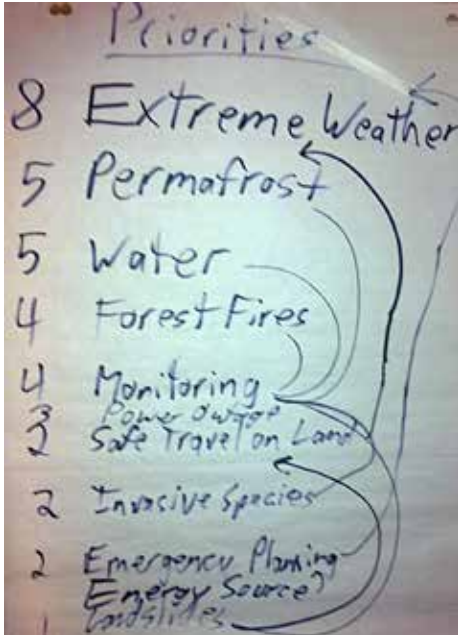 Priorities
8 Extreme Weather
5 Permafrost
5 Water
4 Forest Fires
4 Monitoring
3 Power
2 Safe Travel on Land
2 Invasive Species
2 Emergency Planning
Energy Source?
1 Landslides